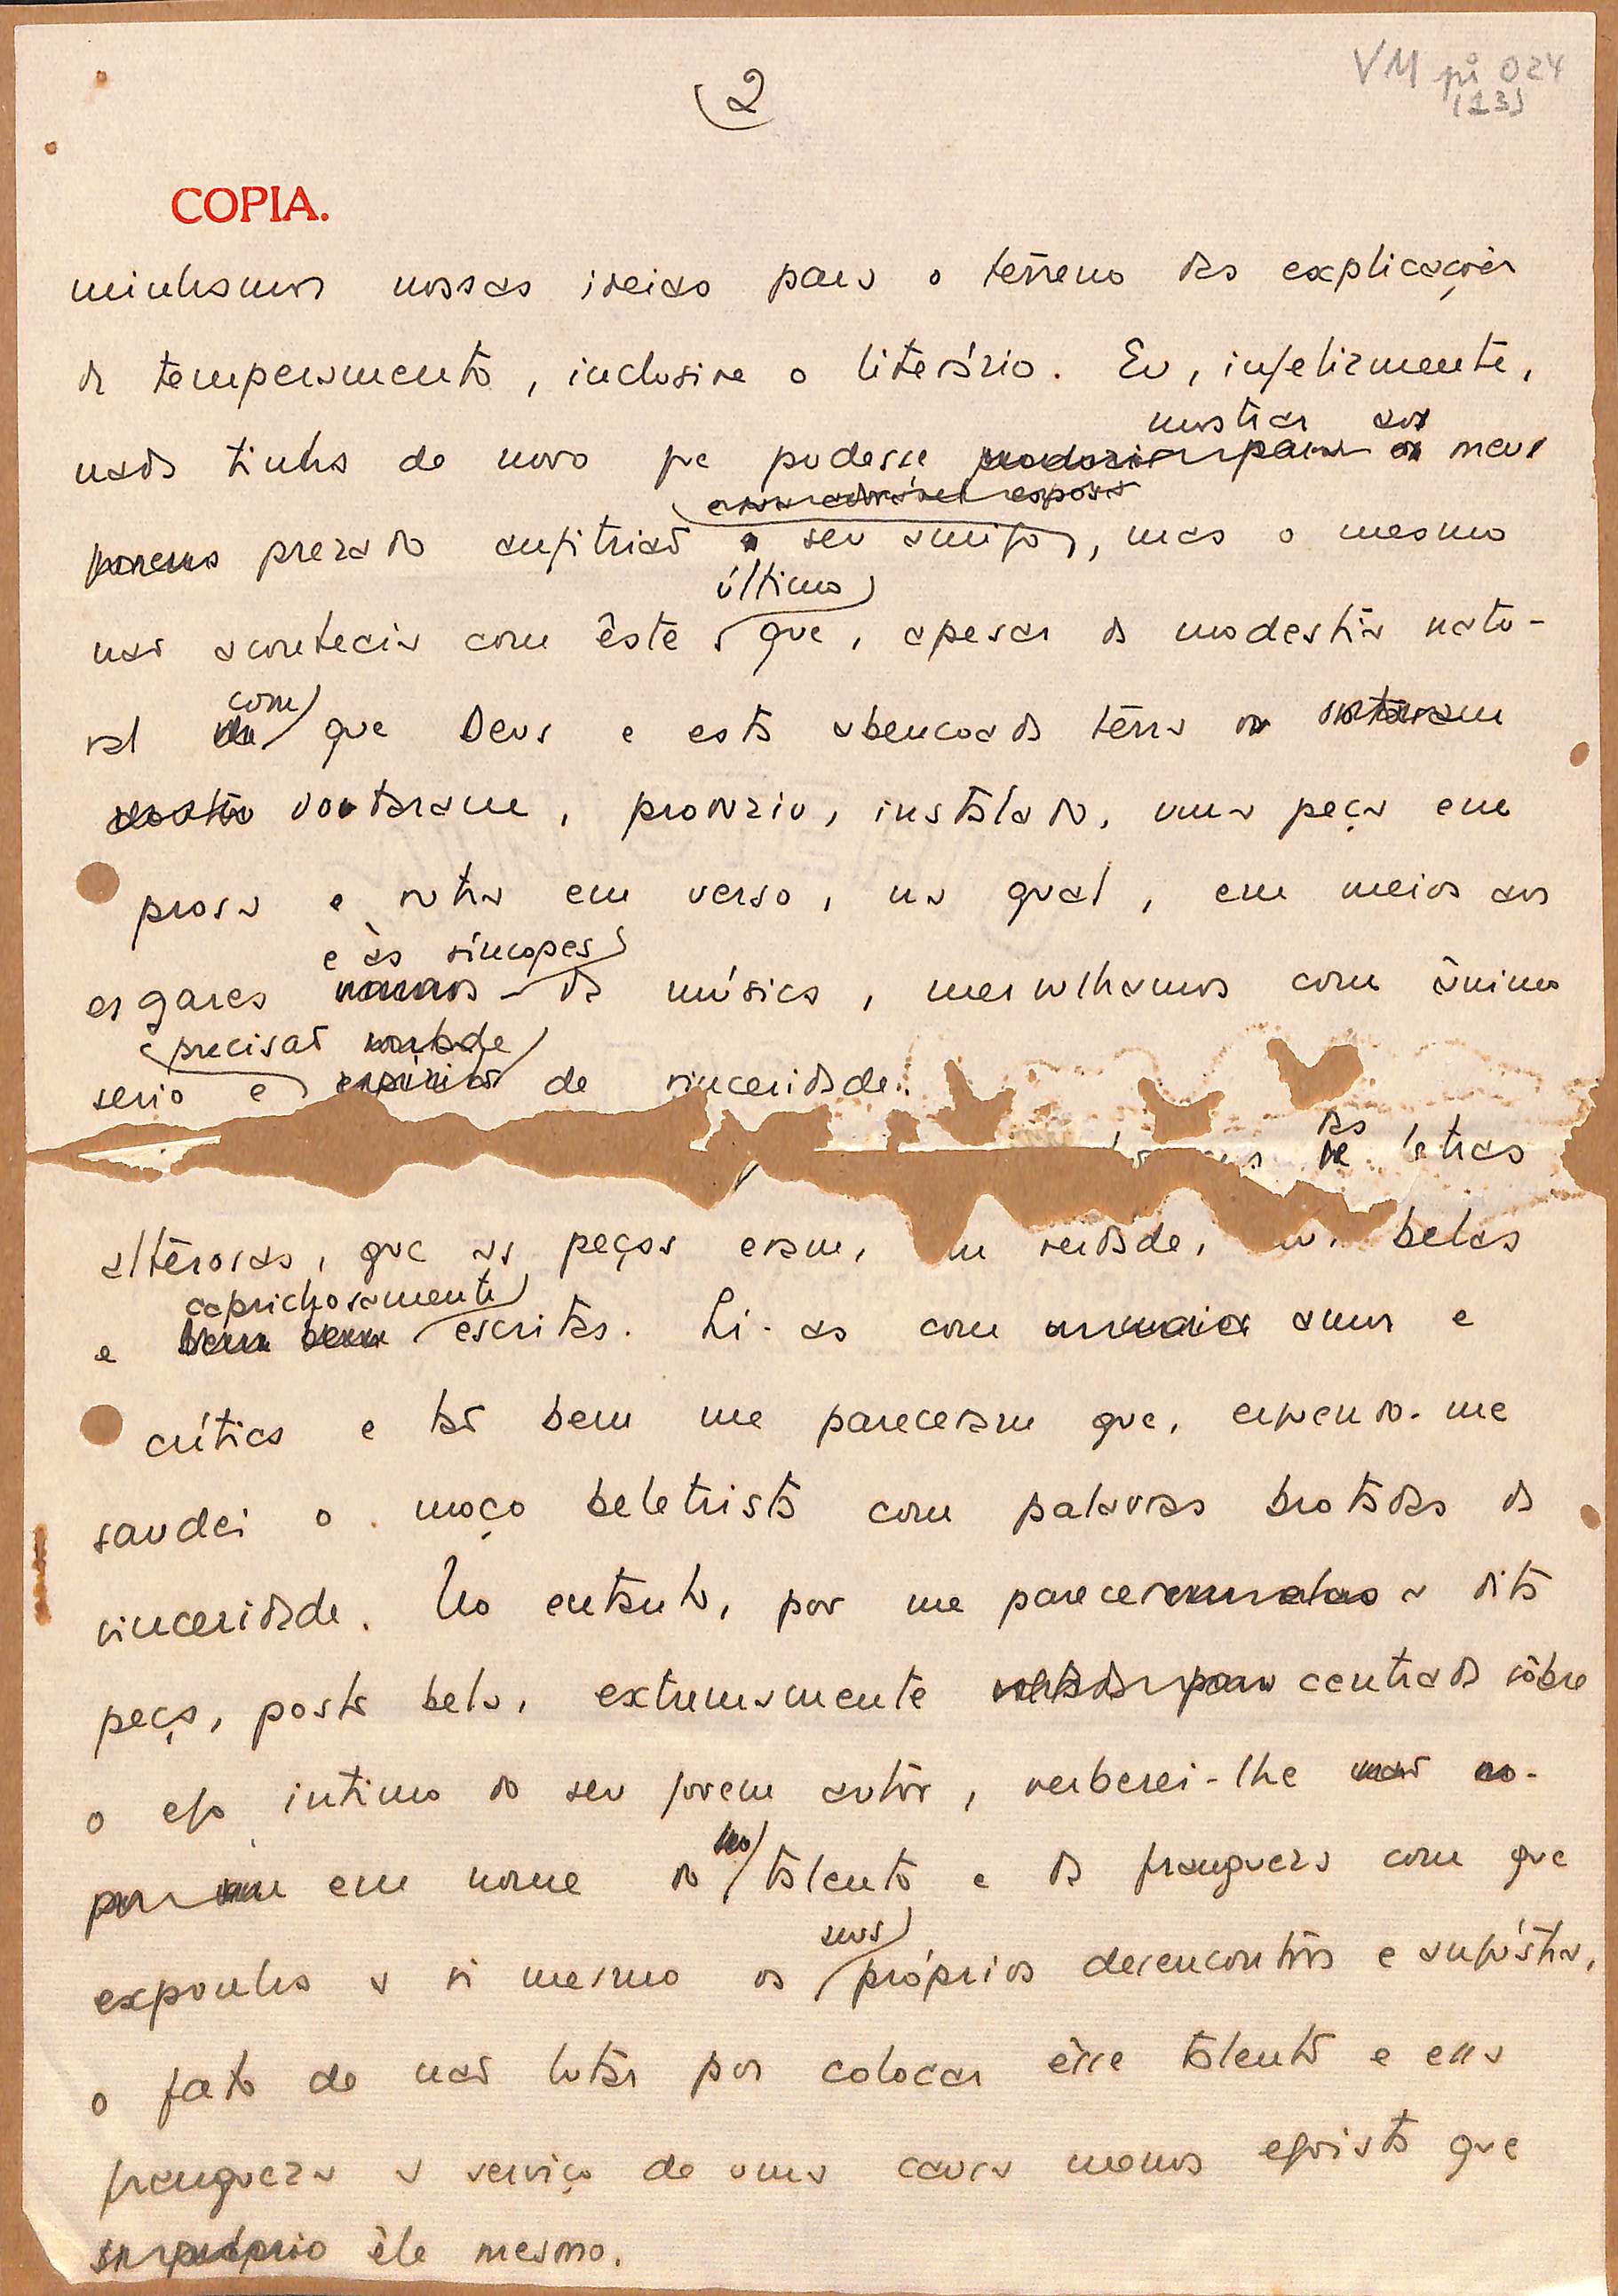 VM pi 024
(13)
2
COPIA.
minhamos nossas ideias para o terreno das explicações
de temperamento, inclusive o literário. Eu, infelizmente,
mostrar aos
nada tinha de novo que pudesse produzir para os meus
essa adorável esposa
prezado anfitrião e seu amigo, mas o mesmo
último
não acontecia com êste que, apesar da modéstia natu-
com
ral de que Deus e esta abençoada terra o
dotaram, produziu, instalado, uma peça em
prosa e outra em verso, na qual, em meios aos
e às síncopes
esgares da música, mergulhamos com ânimo
precisão
serio e de sinceridade.
das
de letras
alterosas, que as peças eram, verdade, belas
caprichosamente
e bem bem escritas. Li-as com amor e
crítica e tão bem me pareceram que, erguendo-me
saudei o moço beletrista com palavras brotadas da
sinceridade. No entanto, por me parecer a dita
peça, posto bela, extremamente centrada sôbre
o ego íntimo do seu jovem autor, verberei-lhe
em nome do talento e da franqueza com que
seus
expunha a si mesmo os próprios desencontros e angústia,
o fato de não lutar por colocar êsse talento e essa
franqueza a serviço de uma causa menos egoísta que
próprio êle mesmo.